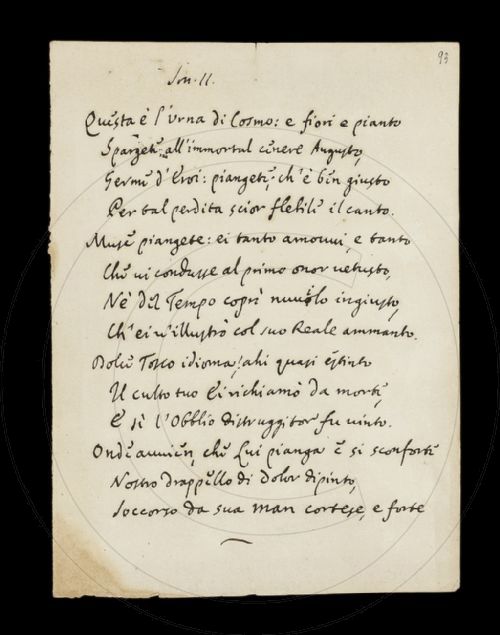 93
Son. II.
Questa è l'Urna di Cosmo: e fiori e pianto
Spargete all'immortal cenere Augusto,
Germe d'Eroi: piangete; ch'è ben giusto
Per tal perdita scior flebile il canto.
Muse piangete: ei tanto amovvi, e tanto
Che vi condusse al primo onor vetusto,
Nè del Tempo coprì nuvolo ingiusto,
Ch'ei v'illustrò col suo Reale ammanto.
Dolce Tosco idioma! ahi quasi estinto
Il culto tuo Ei richiamò da morte,
E sì l'Obblio distruggitor fu vinto.
Ond'avvien, che Lui pianga e si sconforte
Nostro drappello di dolor dipinto,
Soccorso da sua man cortese, e forte